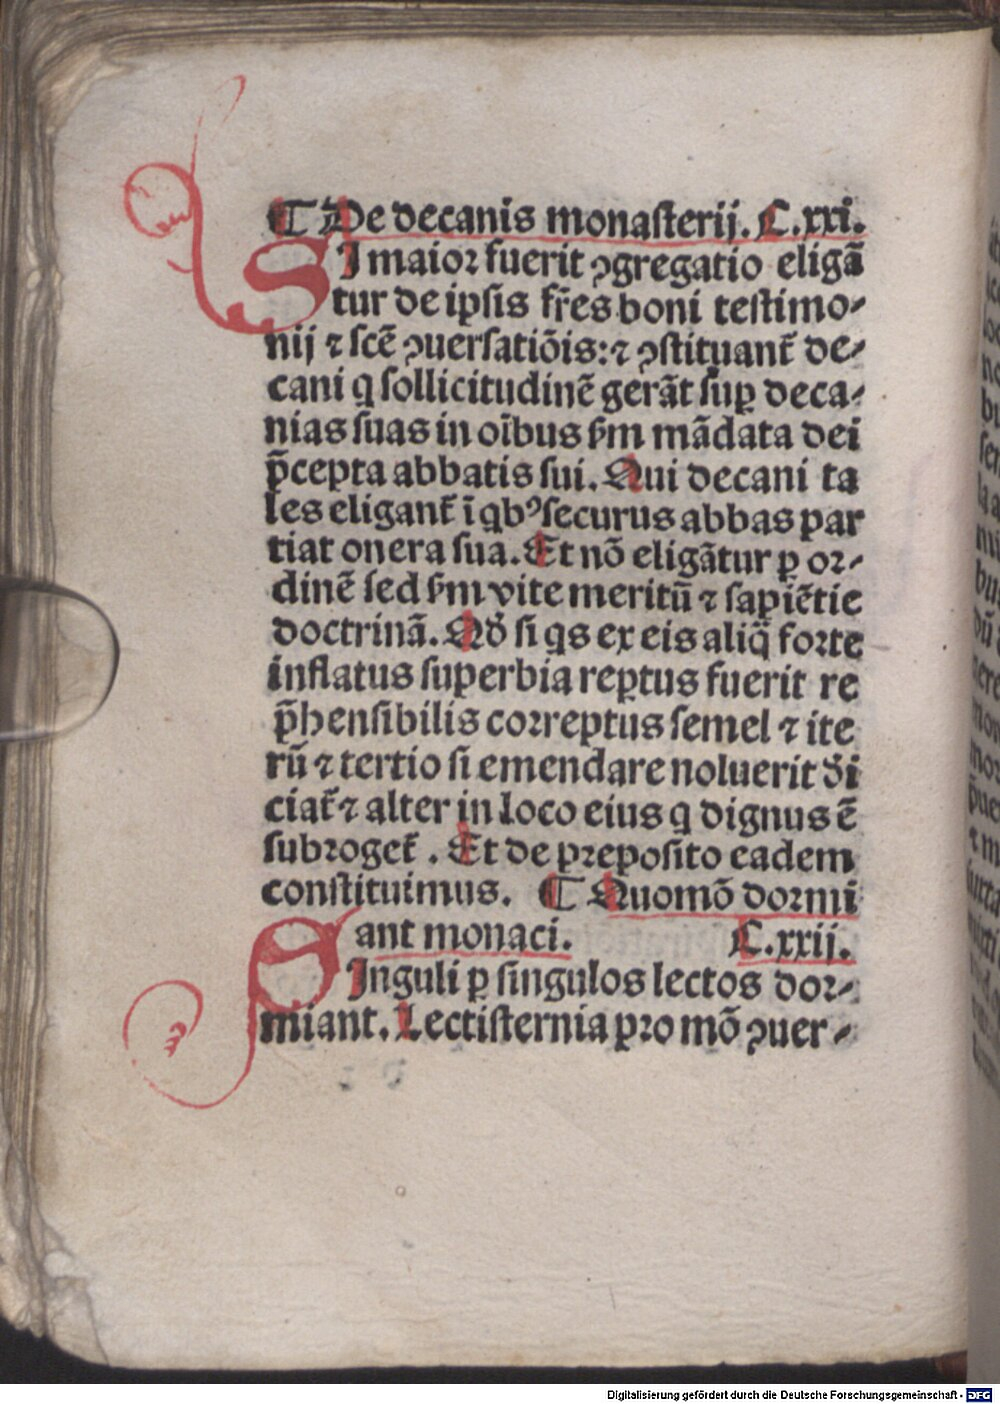 ¶ De decanis monasterij. C.xxi.
SI maior fuerit ꝯgregatio eligā
tur de ipsis fr̄es boni testimo-
nij ⁊ scē ꝯuersatiōis:⁊ ꝯstituant᷑ de-
cani q sollicitudinē gerāt suꝑ deca-
nias suas in oībus ẜm mādata dei
p̄cepta abbatis sui. Qui decani ta
les eligant᷑ ī qbꝰ securus abbas par
tiat onera sua. Et nō eligātur ꝑ or-
dinē sed ẜm vite meritū ⁊ sapiētie
doctrinā. Qd̛ si qs ex eis aliq̄ forte
inflatus superbia reꝑtus fuerit re
p̄hensibilis correptus semel ⁊ ite
rū ⁊ tertio si emendare noluerit d̛i
ciat᷑ ⁊ alter in loco eius q dignus ē
subroget᷑ . Et de preposito eadem
constituimus. ¶ Quomō dormi
ant monaci. C.xxij.
SInguli ꝑ singulos lectos dor-
miant. Lectisternia pro mō ꝯuer-
Digitalisierung gefördert durch die Deutsche Forschungsgemeinschaft - DFG